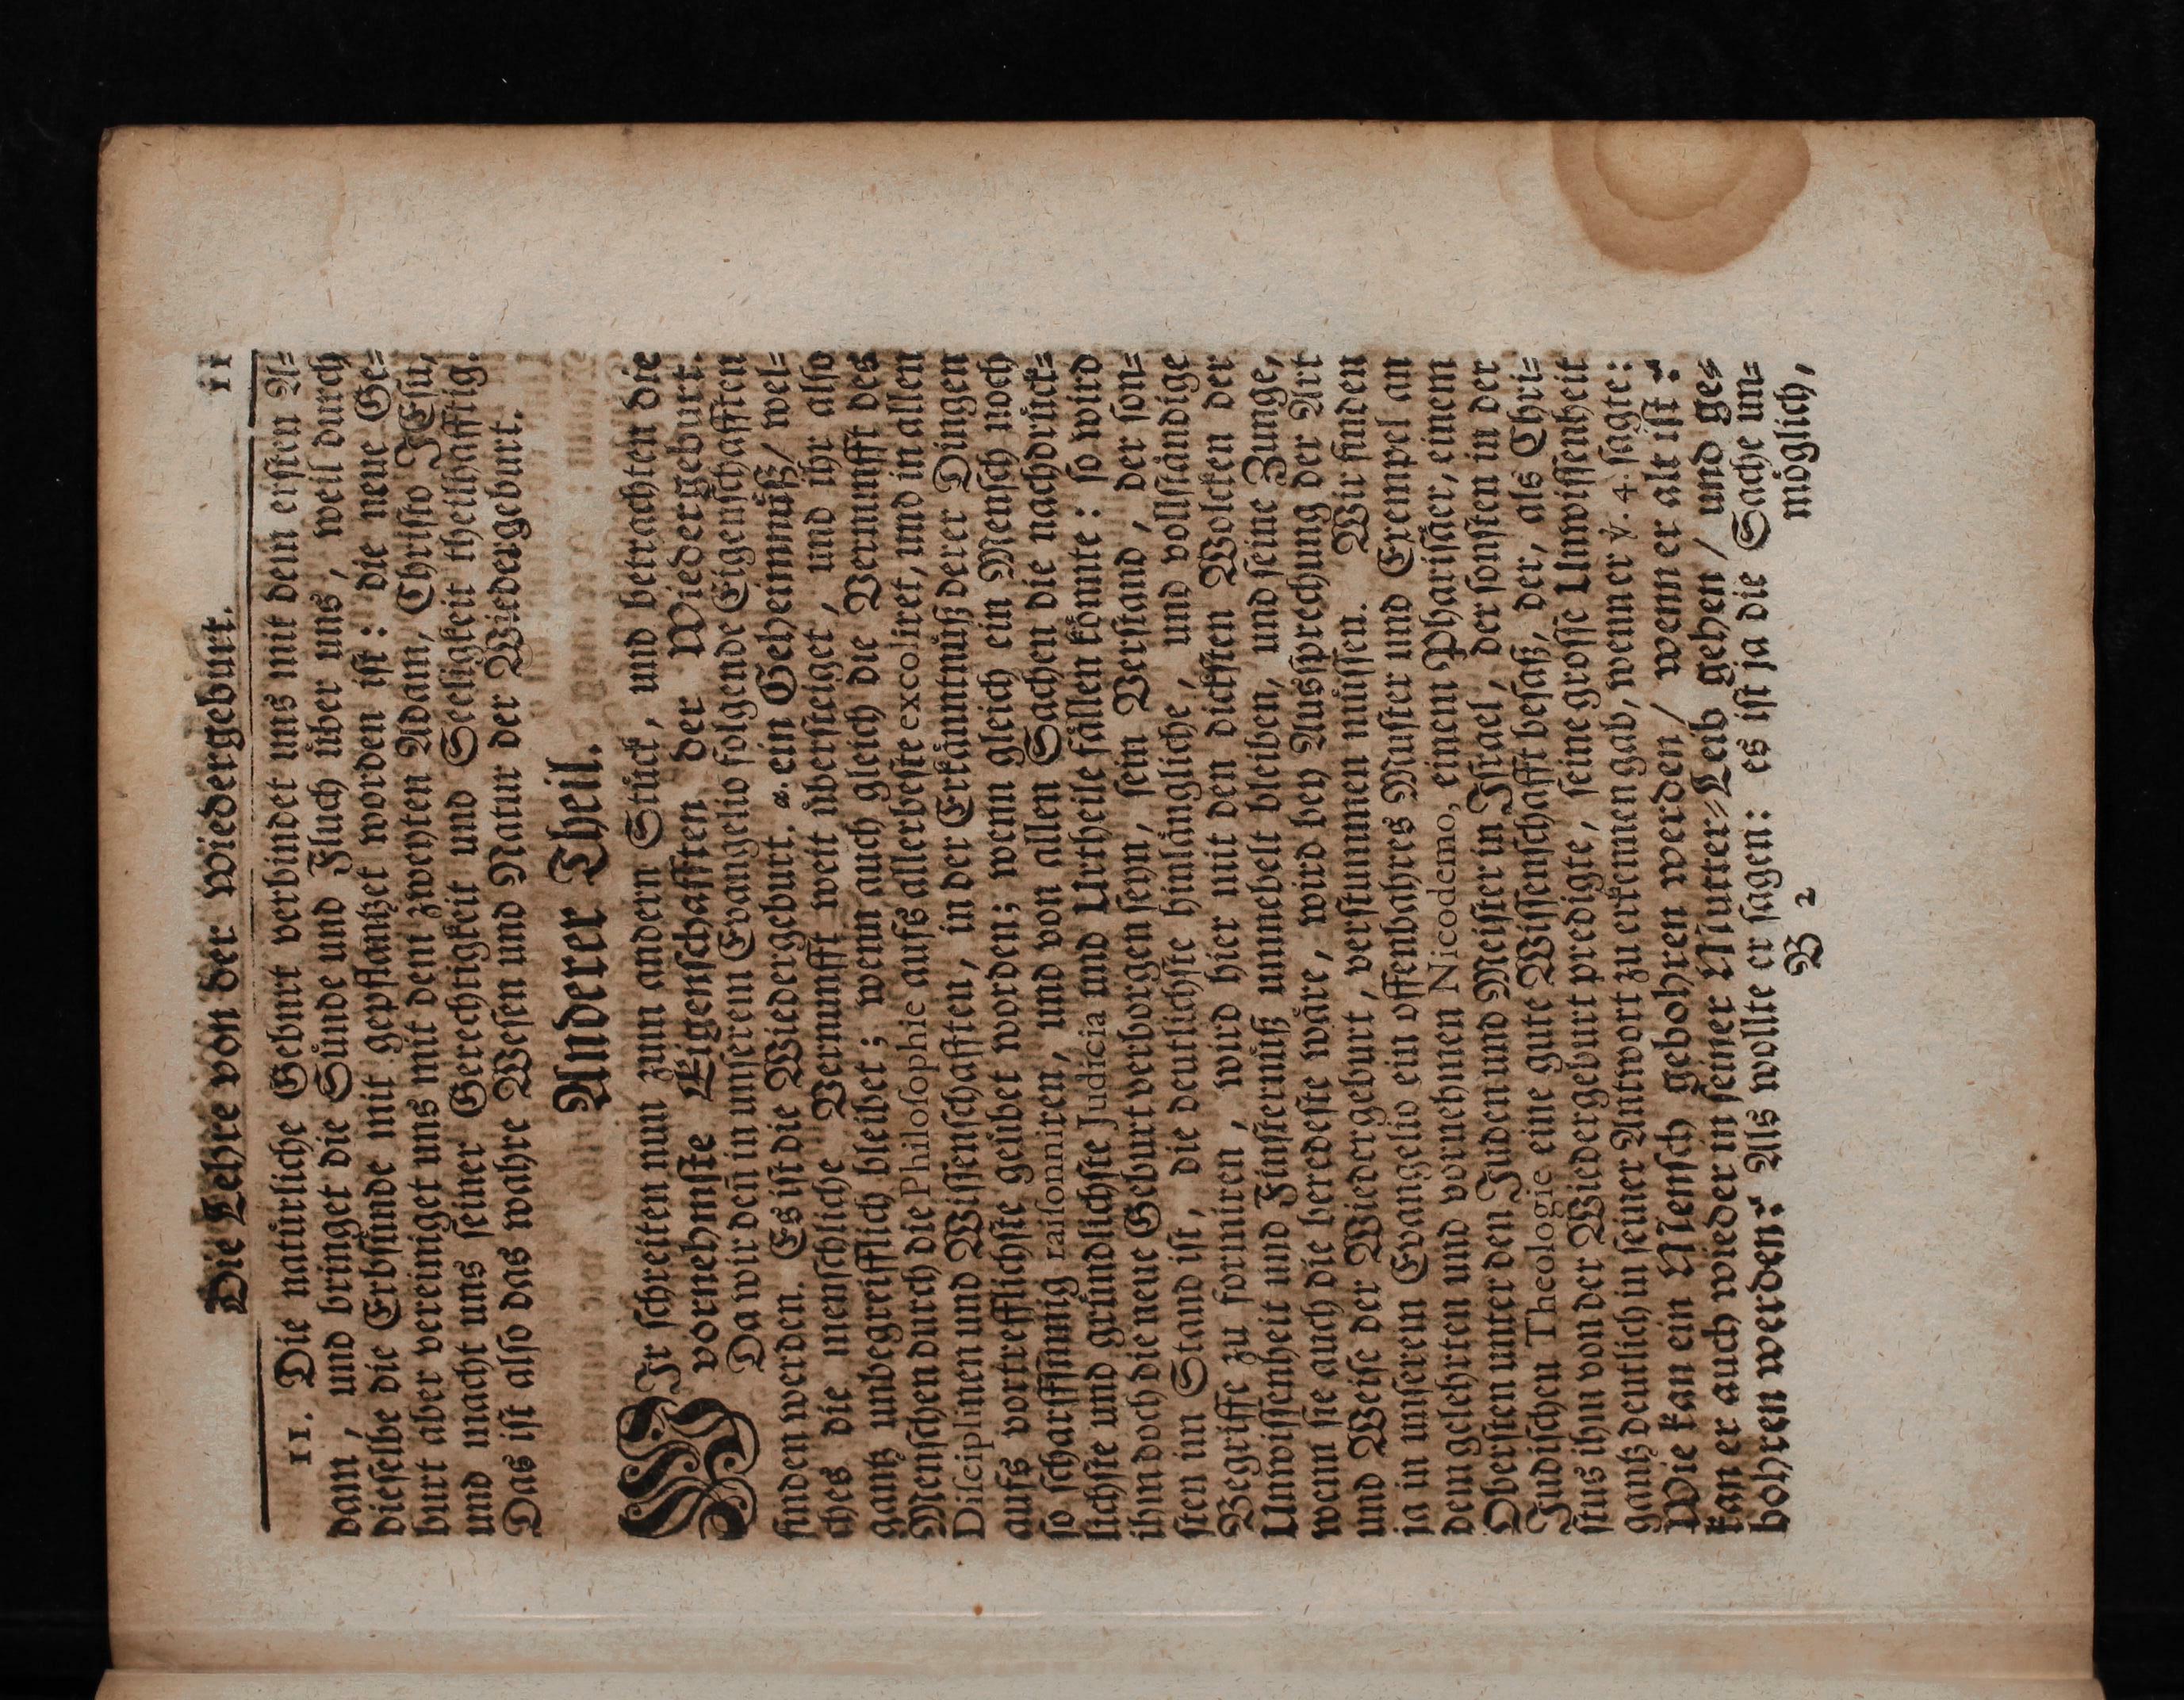 Die Lehre von der Wiedergeburt. 11
11. Die natürliche Geburt verbindet uns mit dem ersten A-
dam, und bringet die Sünde und Fluch über uns, weil durch
dieselbe die Erbsünde mit gepflantzet worden ist: die neue Ge-
burt aber vereiniget uns mit dem zweyten Adam, Christo JEsu,
und macht uns seiner Gerechtigkeit und Seeligkeit theilhafftig.
Das ist also das wahre Wesen und Natur der Wiedergeburt.
Anderer Theil.
WIr schreiten nun zum andern Stück, und betrachten die
vornehmste Eigenschafften der Wiedergeburt.
Da wir deñ in unserem Evangelio folgende Eigenschafften
finden werden. Es ist die Wiedergeburt. α. ein Geheimnüß, wel-
ches die menschliche Vernunfft weit übersteiget, und ihr also
gantz unbegreifflich bleibet; wenn auch gleich die Vernunfft des
Menschen durch die Philosophie aufs allerbeste excoliret, und in allen
Disciplinen und Wissenschafften, in der Erkänntnüß derer Dingen
aufs vortrefflichste geübet worden; wenn gleich ein Mensch noch
so scharffsinnig raisonniren, und von allen Sachen die nachdrück-
lichste und gründlichste Judicia und Urtheile fällen könnte: so wird
ihm doch die neue Geburt verborgen seyn, sein Verstand, der son-
sten im Stand ist, die deutlichste hinlängliche, und vollständige
Begriffe zu formiren, wird hier mit den dicksten Wolcken der
Unwissenheit und Finsternüß umnebelt bleiben, und seine Zunge,
wenn sie auch die beredeste wäre, wird bey Aussprechung der Art
und Weise der Wiedergeburt, verstummen müssen. Wir finden
ja in unserem Evangelio ein offenbahres Muster und Exempel an
dem gelehrten und vornehmen Nicodemo, einem Pharisäer, einem
Obersten unter den Juden und Meister in Israel, der sonsten in der
Jüdischen Theologie eine gute Wissenschafft besaß, der, als Chri-
stus ihm von der Wiedergeburt predigte, seine grosse Unwissenheit
gantz deutlich in seiner Antwort zu erkennen gab, wenn er ℣. 4. sagte:
Wie kan ein Mensch gebohren werden/ wenn er alt ist?
kan er auch wieder in seiner Mutter-Leib gehen/ und ge-
bohren werden? Als wollte er sagen: es ist ja die Sache un-
B 2 möglich,